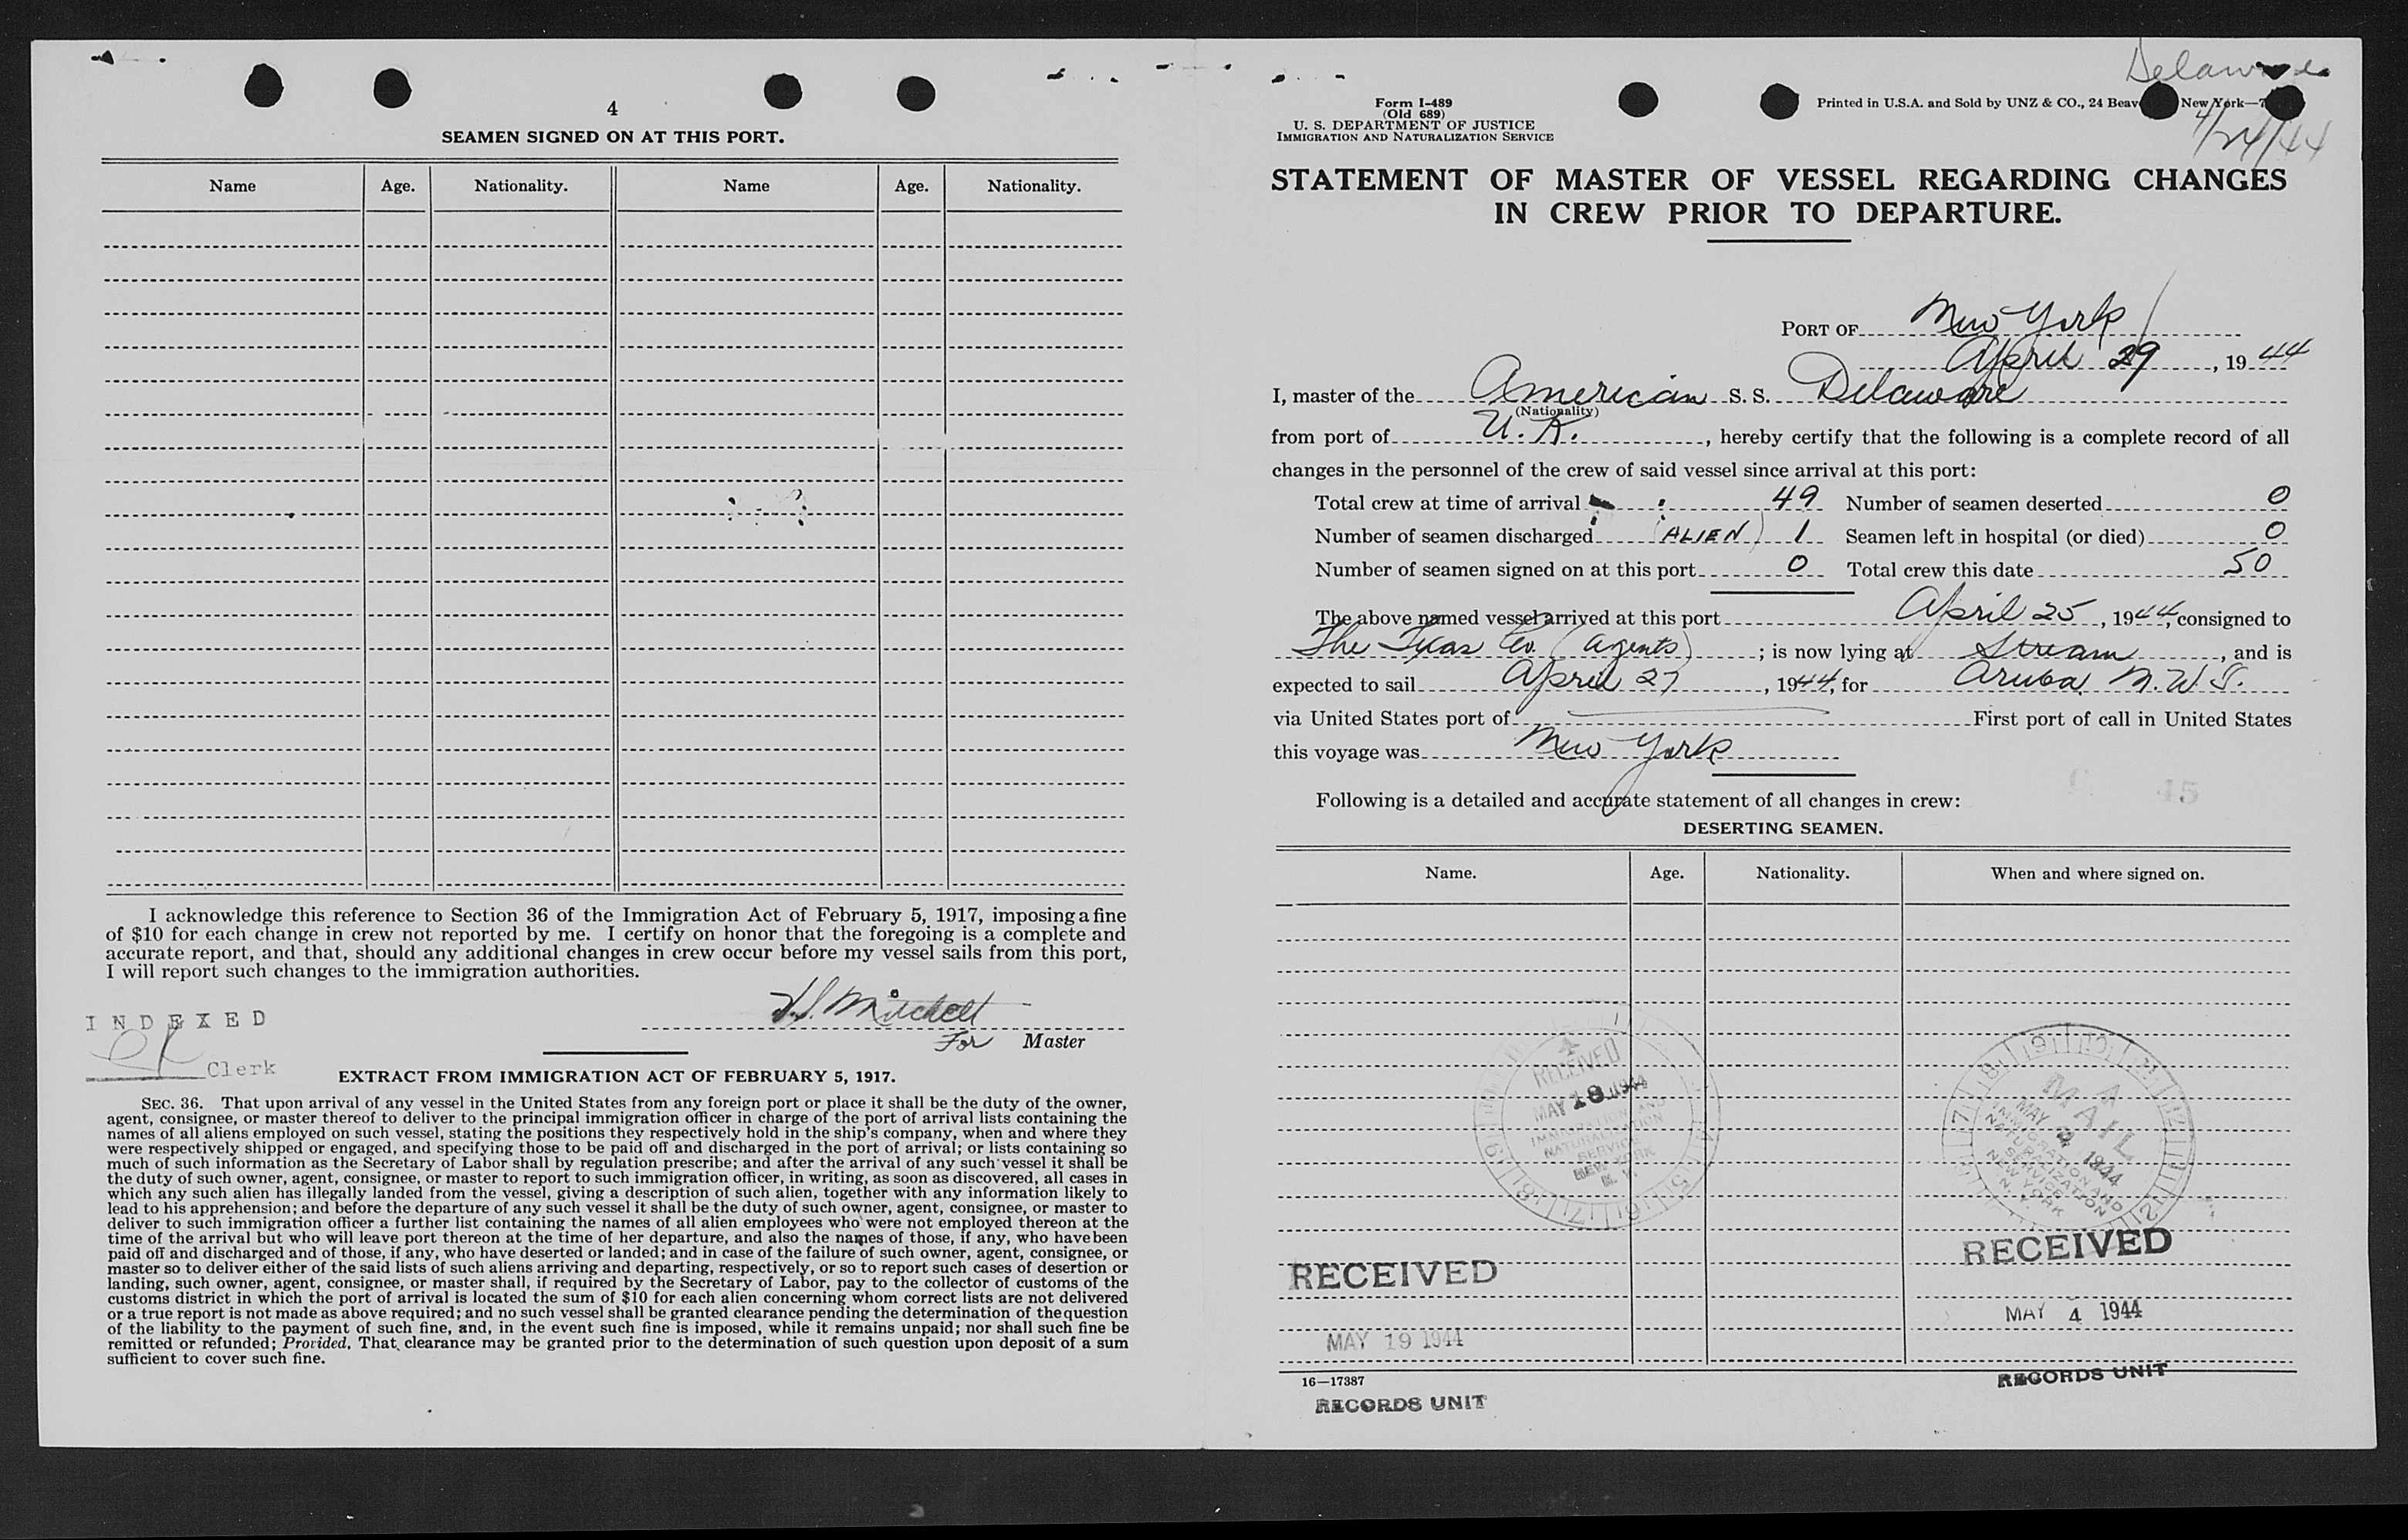 4
SEAMEN SIGNED ON AT THIS PORT.
Name Age. Nationality. Name Age. Nationality.
I acknowledge this reference to Section 36 of the Immigration Act of February 5, 1917, imposing a fine
of $10 for each change in crew not reported by me. I certify on honor that the foregoing is a complete and
accurate report, and that, should any additional changes in crew occur before my vessel sails from this port,
I will report such changes to the immigration authorities.
Mitchell
For Master
INDEXED
Clerk
EXTRACT FROM IMMIGRATION ACT OF FEBRUARY 5, 1917.
SEC. 36. That upon arrival of any vessel in the United States from any foreign port or place it shall be the duty of the owner,
agent, consignee, or master thereof to deliver to the principal immigration officer in charge of the port of arrival lists containing the
names of all aliens employed on such vessel, stating the positions they respectively hold in the ship's company, when and where they
were respectively shipped or engaged, and specifying those to be paid off and discharged in the port of arrival; or lists containing so
much of such information as the Secretary of Labor shall by regulation prescribe; and after the arrival of any such vessel it shall be
the duty of such owner, agent, consignee, or master to report to such immigration officer, in writing, as soon as discovered, all cases in
which any such alien has illegally landed from the vessel, giving a description of such alien, together with any information likely to
lead to his apprehension; and before the departure of any such vessel it shall be the duty of such owner, agent, consignee, or master to
deliver to such immigration officer a further list containing the names of all alien employees who were not employed thereon at the
time of the arrival but who will leave port thereon at the time of her departure, and also the names of those, if any, who have been
paid off and discharged and of those, if any, who have deserted or landed; and in case of the failure of such owner, agent, consignee, or
master so to deliver either of the said lists of such aliens arriving and departing, respectively, or so to report such cases of desertion or
landing, such owner, agent, consignee, or master shall, if required by the Secretary of Labor, pay to the collector of customs of the
customs district in which the port of arrival is located the sum of $10 for each alien concerning whom correct lists are not delivered
or a true report is not made as above required; and no such vessel shall be granted clearance pending the determination of the question
of the liability to the payment of such fine, and, in the event such fine is imposed, while it remains unpaid; nor shall such fine be
remitted or refunded; Provided, That clearance may be granted prior to the determination of such question upon deposit of a sum
sufficient to cover such fine.
Delaware
4/24/44
Form I-489
(Old 689)
U. S. DEPARTMENT OF JUSTICE
IMMIGRATION AND NATURALIZATION SERVICE
Printed in U.S.A. and Sold by UNZ & CO., 24 Beav New York—7
STATEMENT OF MASTER OF VESSEL REGARDING CHANGES
IN CREW PRIOR TO DEPARTURE.
PORT OF New York
April 29, 1944
I, master of the American S. S. Delaware
(Nationality)
from port of U. K., hereby certify that the following is a complete record of all
changes in the personnel of the crew of said vessel since arrival at this port:
Total crew at time of arrival 49 Number of seamen deserted 0
Number of seamen discharged (ALIEN) 1 Seamen left in hospital (or died) 0
Number of seamen signed on at this port 0 Total crew this date 50
The above named vessel arrived at this port April 25, 1944, consigned to
The Texas Co. (agents); is now lying at Stream, and is
expected to sail April 27, 1944, for Aruba N. W. I.
via United States port of First port of call in United States
this voyage was New York
Following is a detailed and accurate statement of all changes in crew:
DESERTING SEAMEN.
Name. Age. Nationality. When and where signed on.
RECEIVED
MAY 18 1944
IMMIGRATION AND
NATURALIZATION
SERVICE
NEW YORK
N. Y.
MAIL
MAY 1944
IMMIGRATION AND
NATURALIZATION
SERVICE
NEW YORK
N. Y.
RECEIVED
MAY 4 1944
RECORDS UNIT
RECEIVED
MAY 19 1944
16—17387
RECORDS UNIT